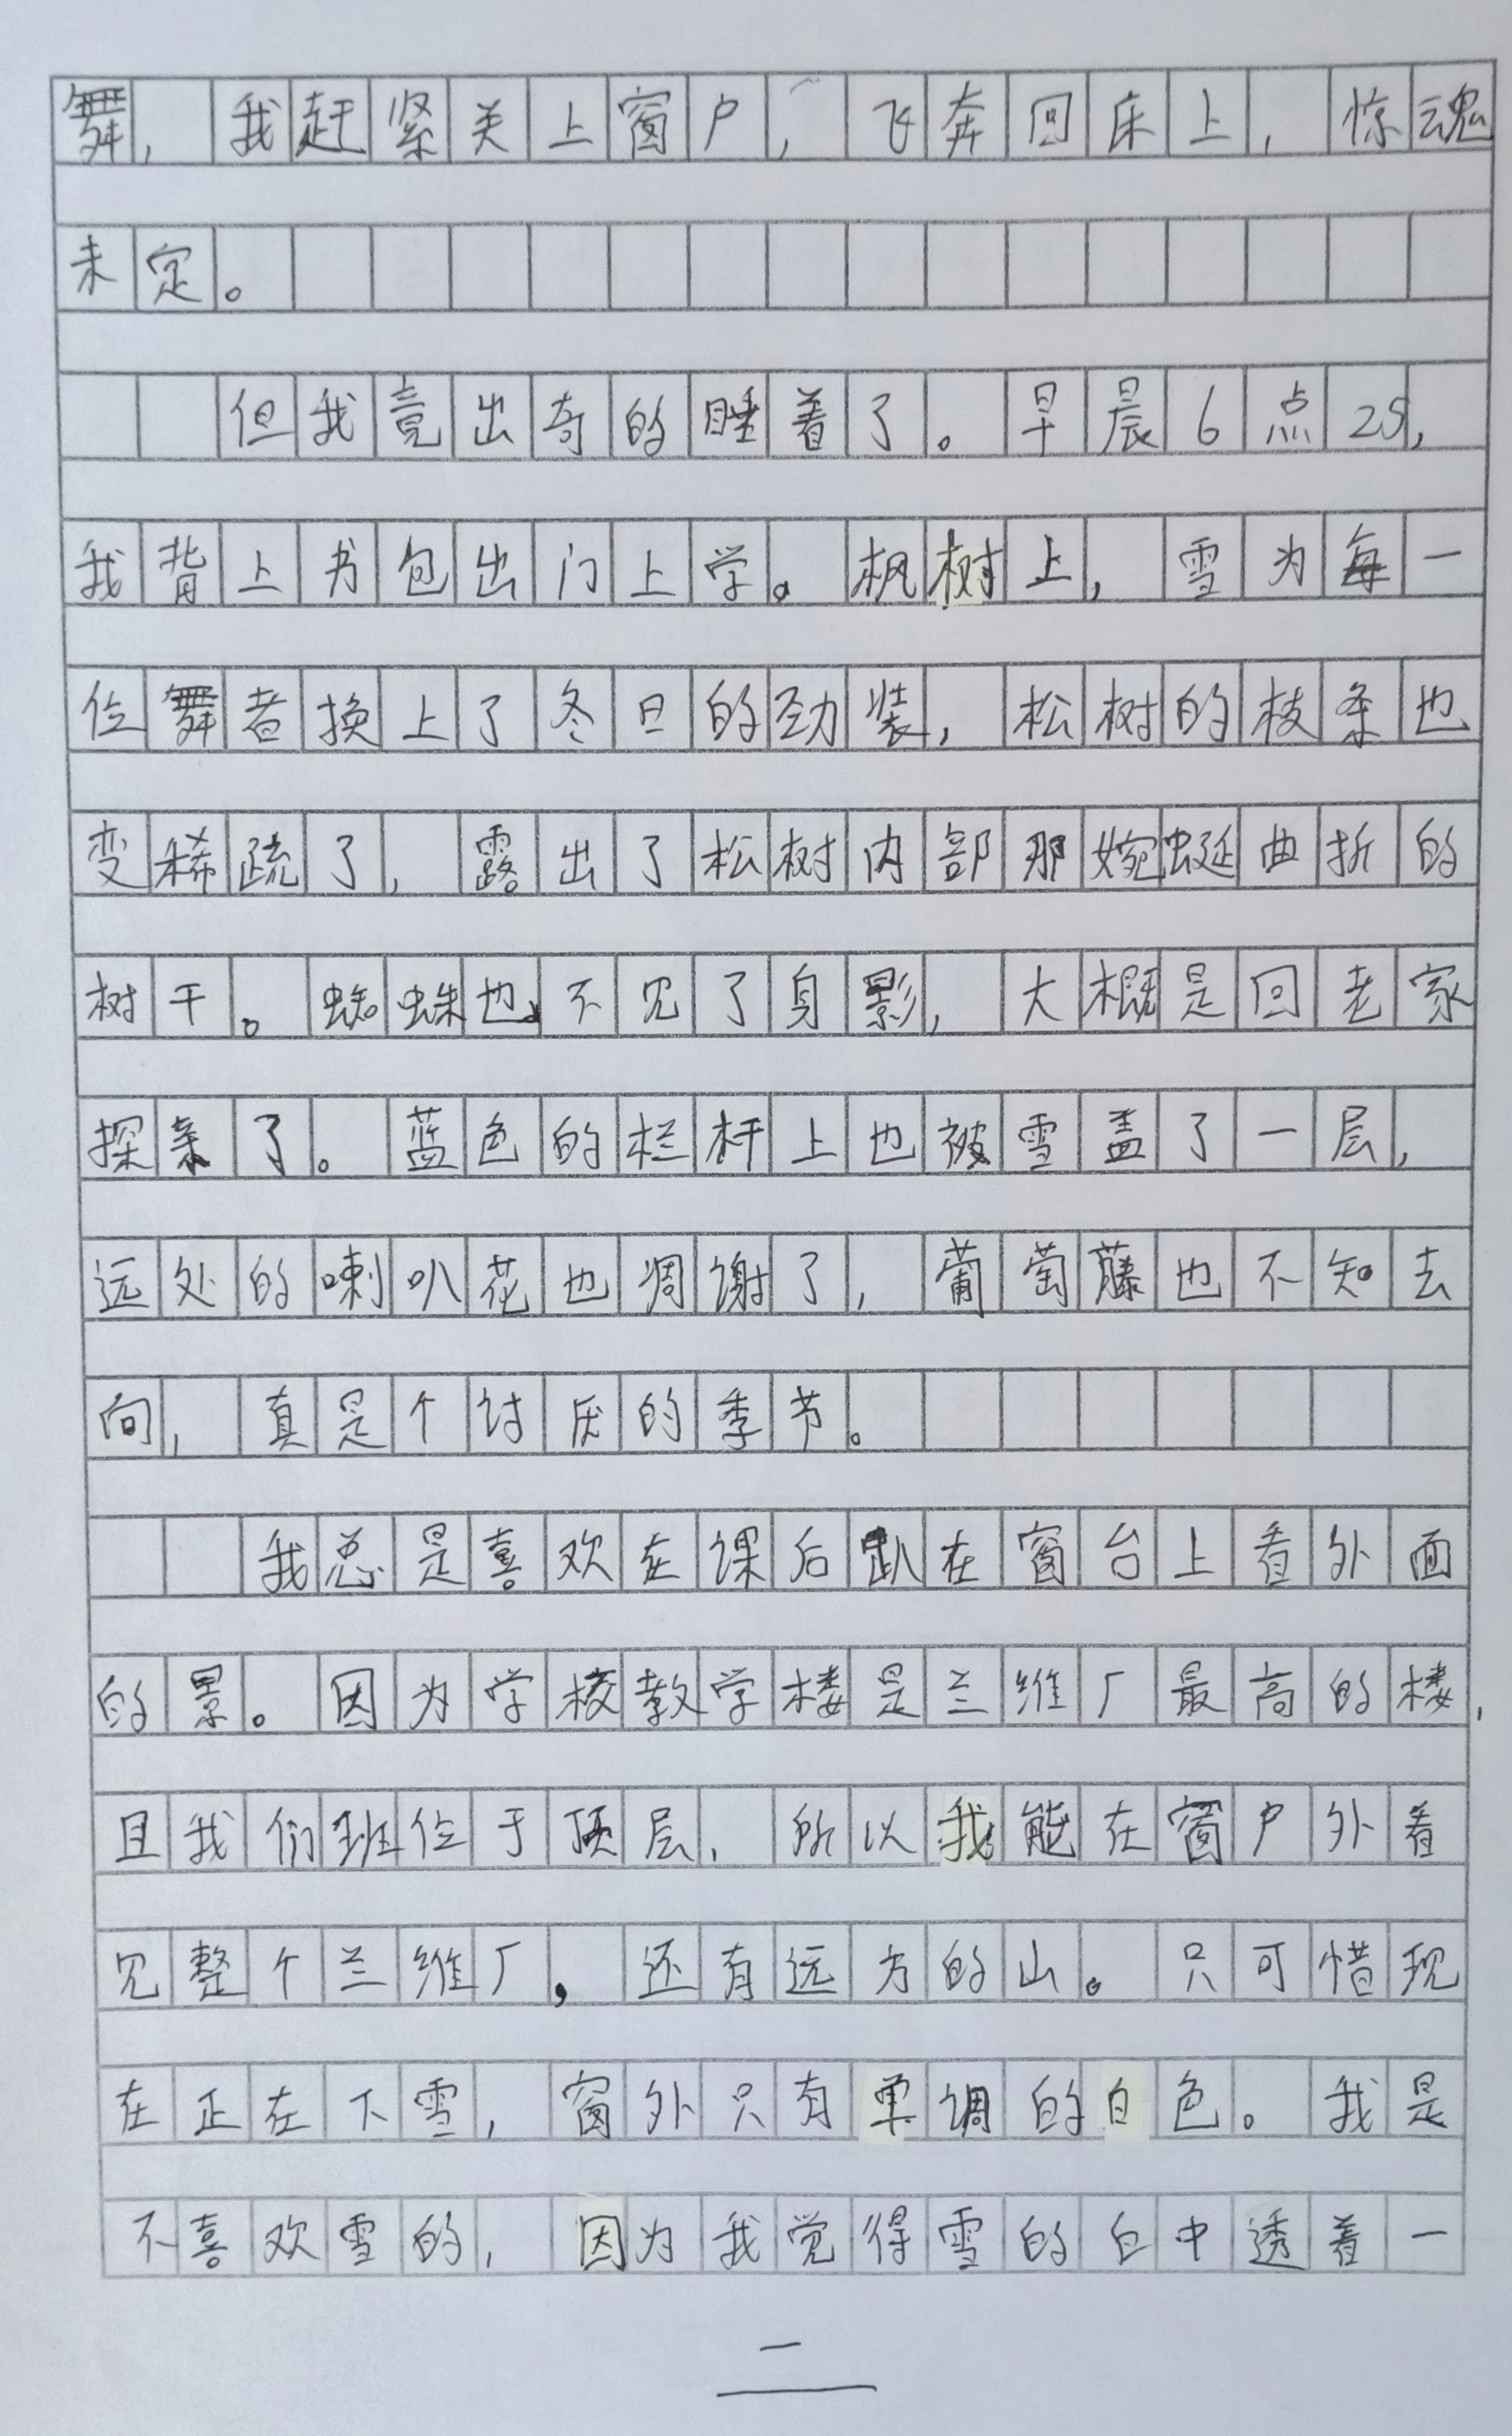 舞，我赶紧关上窗户，飞奔回床上，惊魂
未定。
但我竟出奇的睡着了。早晨6点25，
我背上书包出门上学。枫树上，雪为每一
位舞者换上了冬日的劲装，松树的枝条也
变稀疏了，露出了松树内部那婉蜒曲折的
树干。蜘蛛也不见了身影，大概是回老家
探亲了。蓝色的栏杆上也被雪盖了一层，
远处的喇叭花也凋谢了，葡萄藤也不知去
向，真是个讨厌的季节。
我总是喜欢在课后趴在窗台上看外面
的景。因为学校教学楼是兰维厂最高的楼，
且我们班位于顶层，所以我能在窗户外看
见整个兰维厂，还有远方的山。只可惜现
在正在下雪，窗外只有单调的白色。我是
不喜欢雪的，因为我觉得雪的白中透着一
二